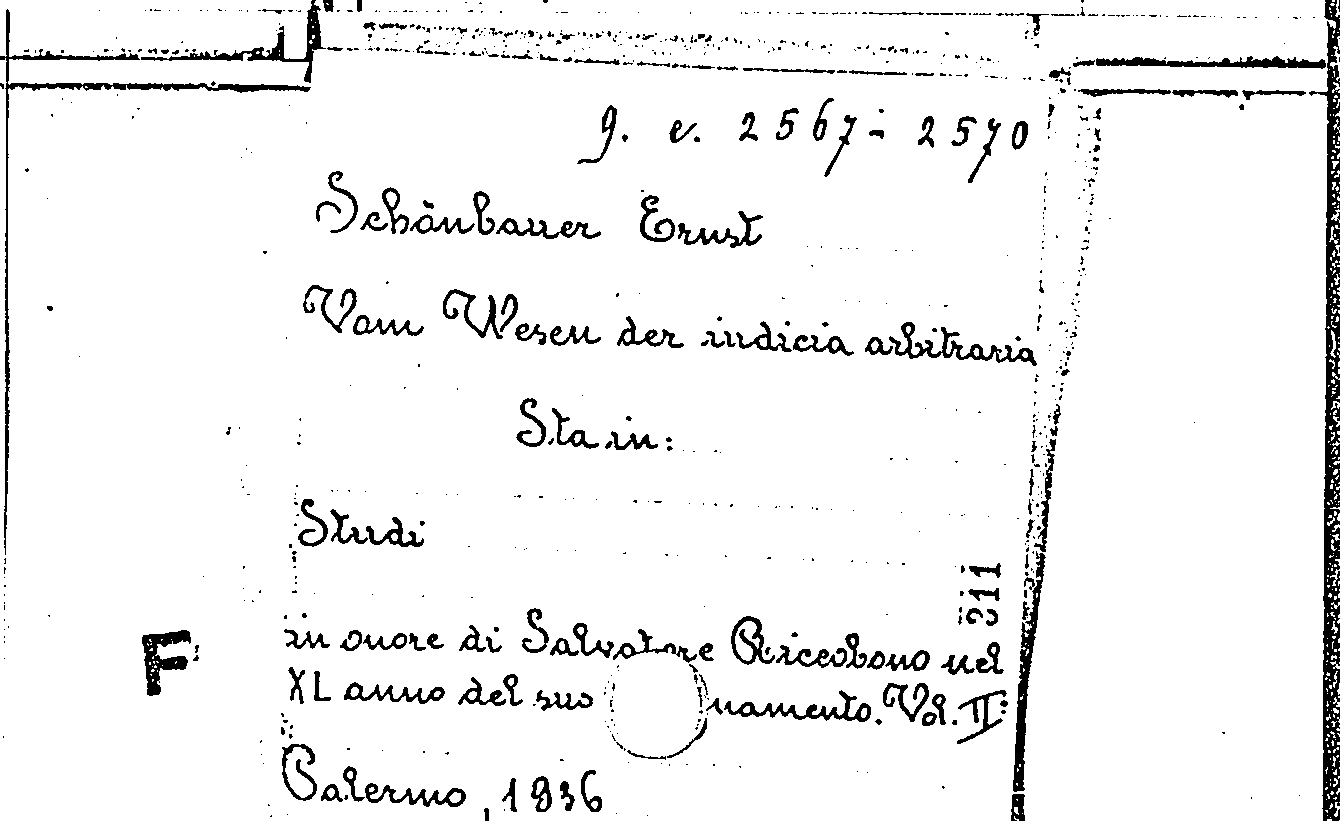 g. e. 2567-2570
Schönbauer Ernst
Vom Wesen der iudicia arbitraria
Sta in:
Studi
in onore di Salvatore Riccobono nel
XL anno del suo namento. Vol. II:
Palermo, 1936
311
F